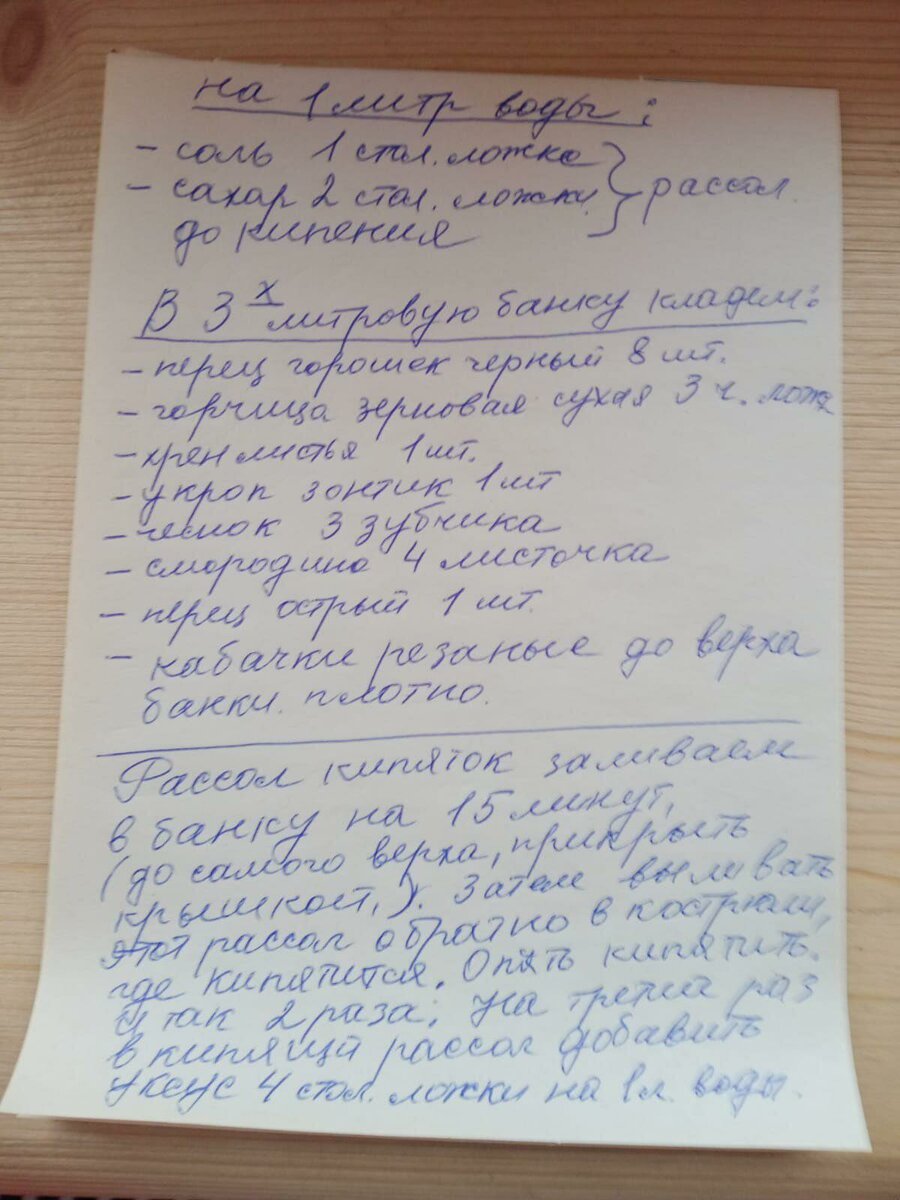 на 1 литр воды:
- соль 1 стол. ложка } рассол
- сахар 2 стол. ложки
до кипения
В 3х литровую банку кладем:
- перец горошек черный 8 шт.
- горчица зерновая сухая 3 ч. лож
- хрен листья 1 шт.
- укроп зонтик 1 шт
- чеснок 3 зубчика
- смородина 4 листочка
- перец острый 1 шт.
- кабачки резаные до верха
банки. плотно.
Рассол кипяток заливаем
в банку на 15 минут,
(до самого верха, прикрыть
крышкой,). Затем выливать
этот рассол обратно в кострюли,
где кипятится. Опять кипятить.
И так 2 раза; На третий раз
в кипящий рассол добавить
уксус 4 стол. ложки на 1 л. воды.